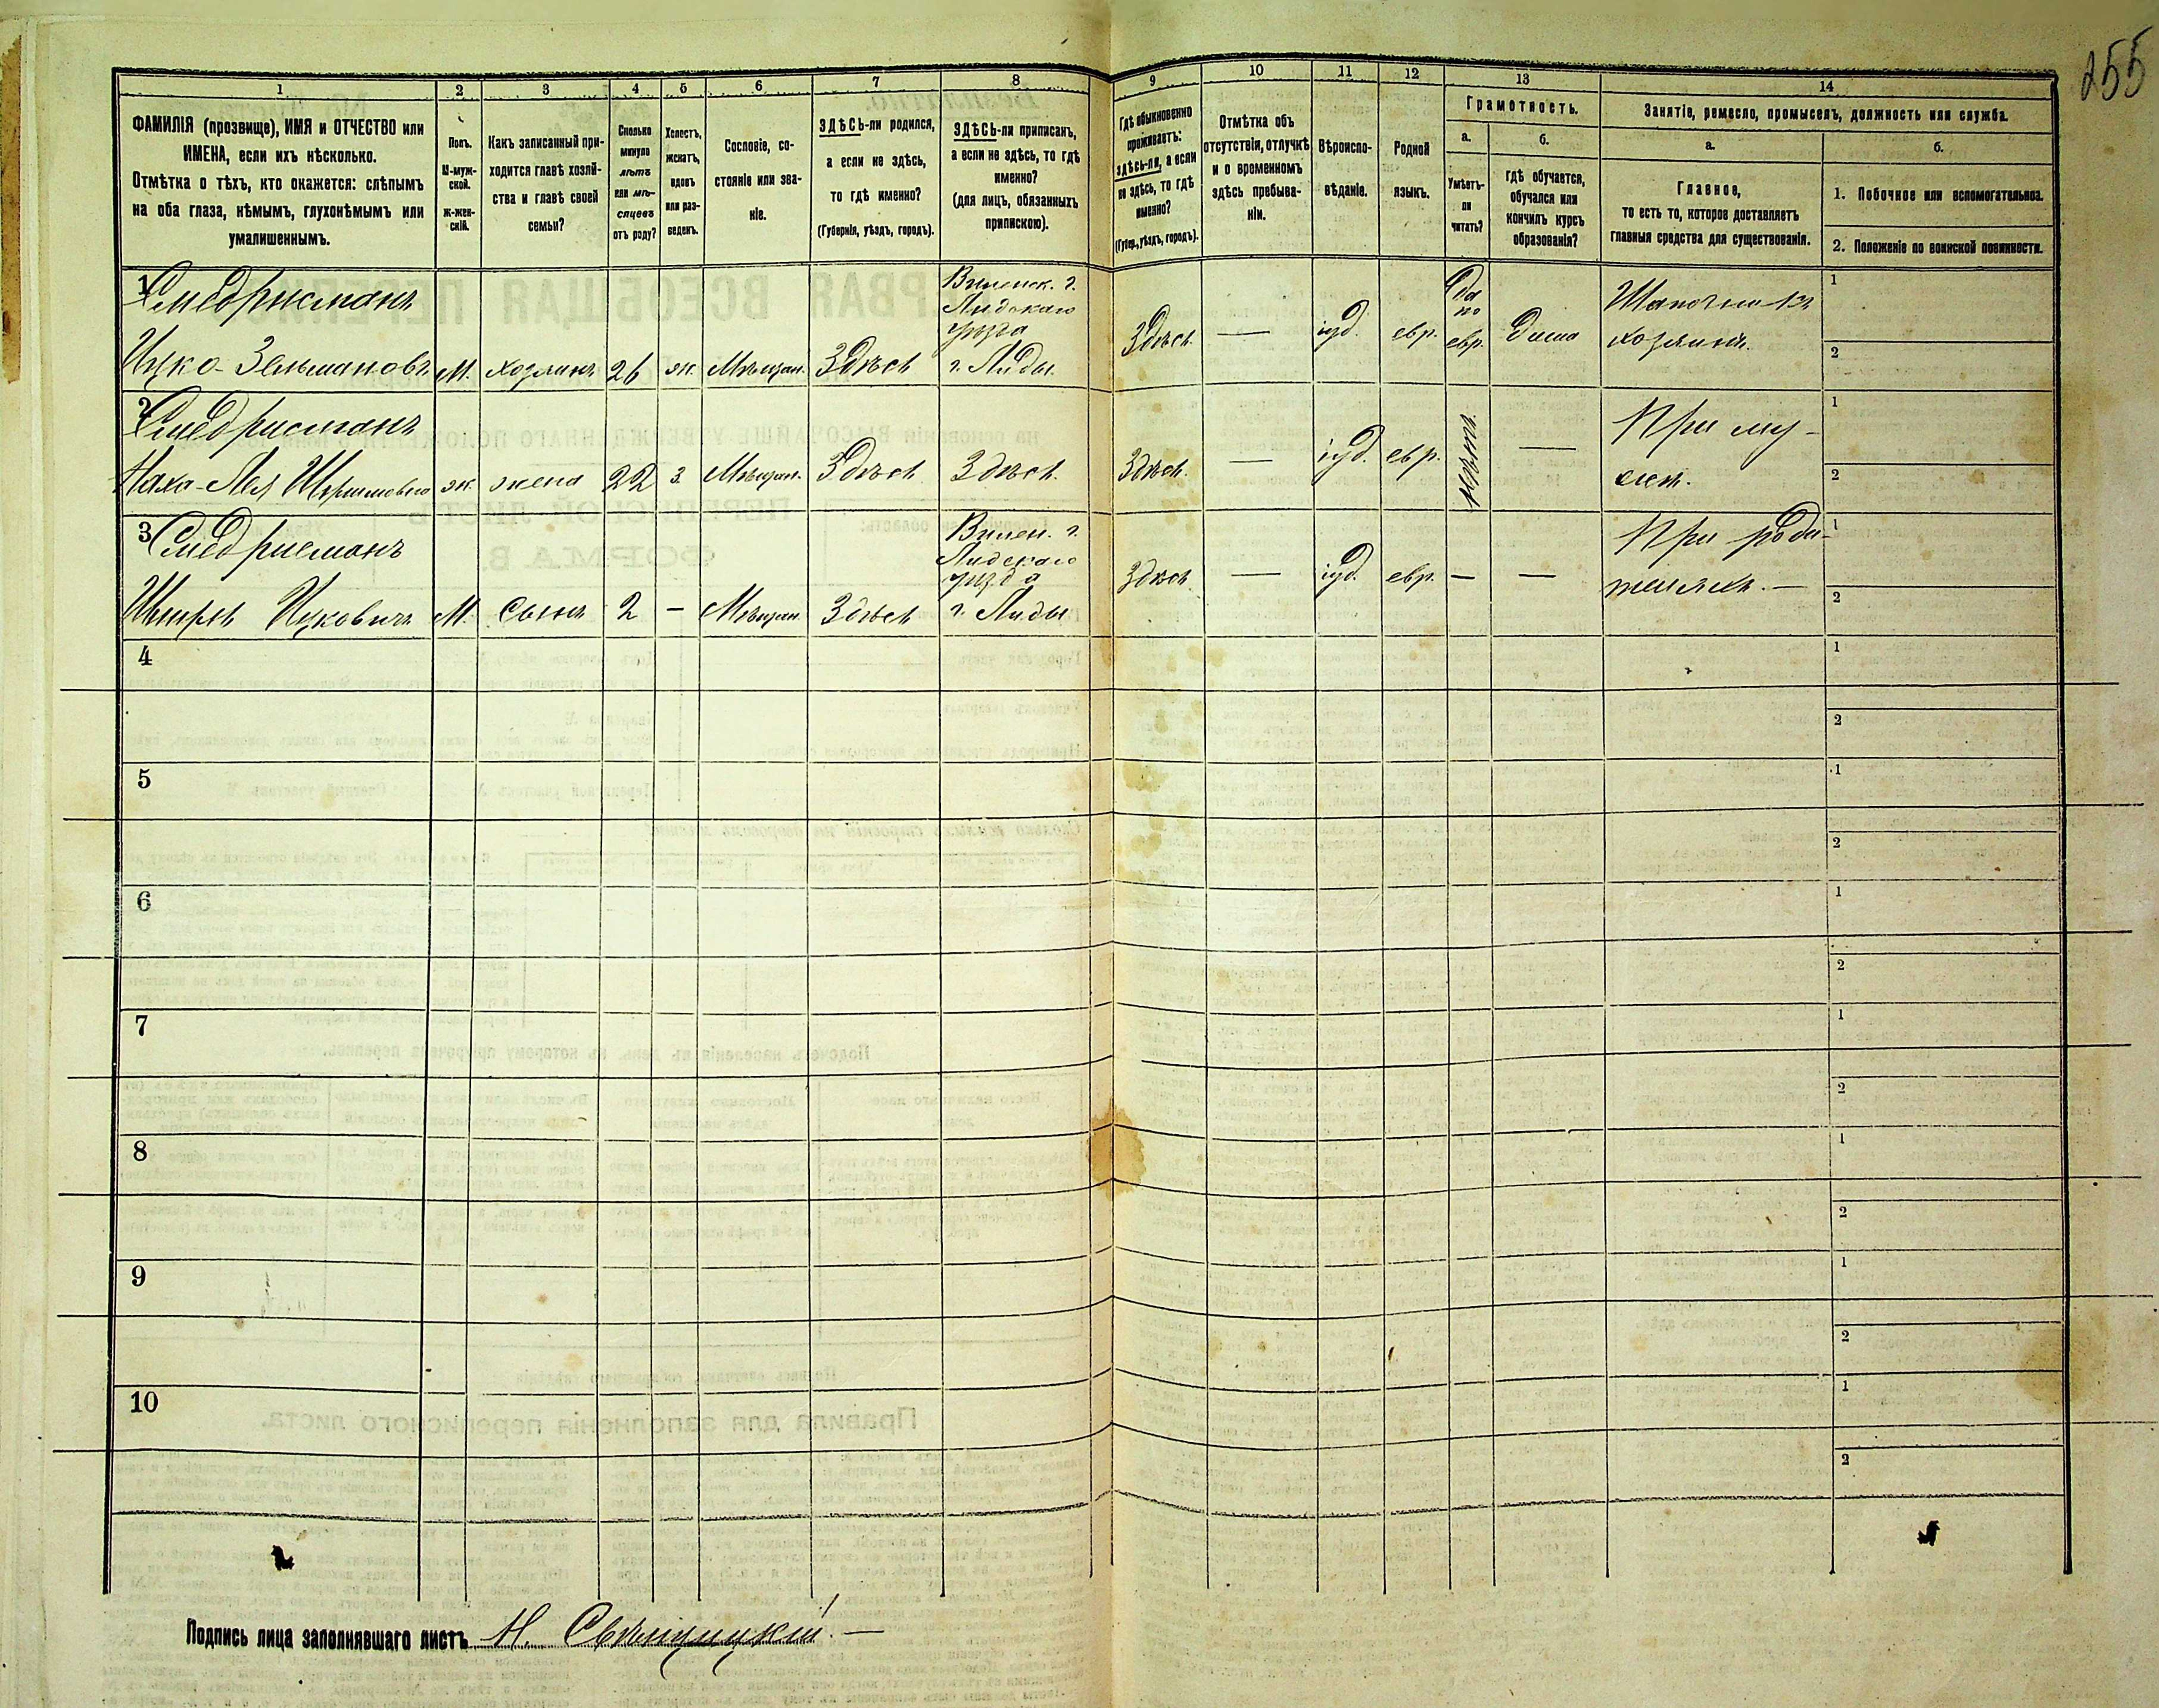 255
1 2 3 4 5 6 7 8 9 10 11 12 13 14
ФАМИЛІЯ (прозвище), ИМЯ и ОТЧЕСТВО или
ИМЕНА, если ихъ нѣсколько.
Отмѣтка о тѣхъ, кто окажется: слѣпымъ
на оба глаза, нѣмымъ, глухонѣмымъ или
умалишеннымъ.
Полъ.
М-муж-
ской.
Ж-жен-
скій.
Какъ записанный при-
ходится главѣ хозяй-
ства и главѣ своей
семьи?
Сколько
минуло
лѣтъ
или мѣ-
сяцевъ
отъ роду?
Холостъ,
женатъ,
вдовъ
или раз-
веденъ.
Сословіе, со-
стояніе или зва-
ніе.
ЗДѢСЬ-ли родился,
а если не здѣсь,
то гдѣ именно?
(Губернія, уѣздъ, городъ).
ЗДѢСЬ-ли приписанъ,
а если не здѣсь, то гдѣ
именно?
(для лицъ, обязанныхъ
припискою).
Гдѣ обыкновенно
проживаетъ:
здѣсь-ли, а если
не здѣсь, то гдѣ
именно?
(Губер., уѣздъ, городъ).
Отмѣтка объ
отсутствіи, отлучкѣ
и о временномъ
здѣсь пребыва-
ніи.
Вѣроиспо-
вѣданіе.
Родной
языкъ.
Грамотность.
а.
Умѣетъ-
ли
читать?
б.
гдѣ обучается,
обучался или
кончилъ курсъ
образованія?
Занятіе, ремесло, промыселъ, должность или служба.
а.
Главное,
то есть то, которое доставляетъ
главныя средства для существованія.
б.
1. Побочное или вспомогательное.
2. Положеніе по воинской повинности.
1
Ицко-Зельмановъ
М. хозяинъ 26 ж. Мѣщан. Здѣсь
Виленск. г.
Лидскаго
уѣзда
г. Лиды
Здѣсь — іуд. евр.
Да
по
евр.
Дома
Шапочникъ
хозяинъ.
1
2
2
ж. жена 22 з. Мѣщан. Здѣсь Здѣсь.
Здѣсь. — іуд. евр. —
При му-
жѣ.
1
2
3
Ицковичъ М. Сынъ 2 — Мѣщан. Здѣсь
Вилен. г.
Лидскаго
уѣзда
г. Лиды
Здѣсь — іуд. евр. — —
При роди-
теляхъ. —
1
2
4
1
2
5
1
2
6
1
2
7
1
2
8
1
2
9
1
2
10
1
2
Подпись лица заполнявшаго листъ